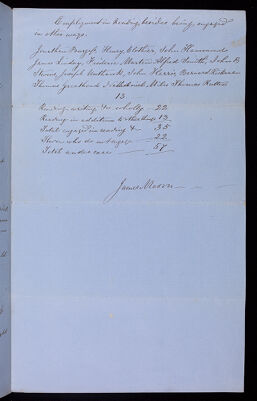 Employment in Reading, besides being engaged
in other ways.
Jonathan Burgess Henry Clothier, John Hammonds
James Lindsay, Frederic Martin Alfred Smith, John B
Stone, Joseph John Harris, Bernard
Thomas Thomas
13
Reading writing &c wholly — 22
Reading in addition to other things 13
Total engaged in reading &c — 35
Those who do not engage — 22
Total under care — 57
James Mason